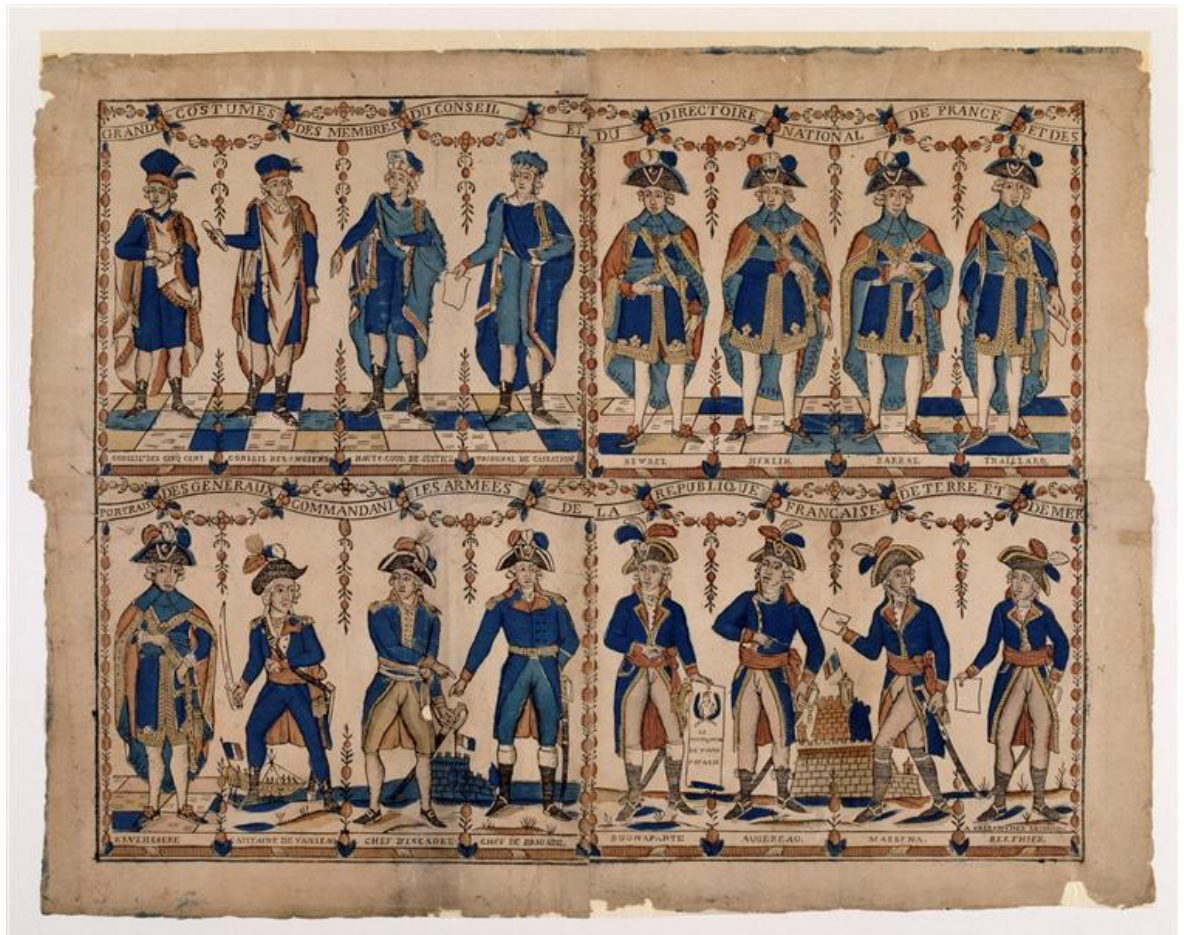 GRAND COSTUMES DES MEMBRES DU CONSEIL ET DU DIRECTOIRE NATIONAL DE FRANCE ET DES
CONSEIL DES CINQ CENT
CONSEIL DES ANCIENS
HAUTE-COUR DE JUSTICE
TRIBUNAL DE CASSATION
REWBEL.
MERLIN.
BARRAS.
TRAILLARD.
PORTRAIS DES GENERAUX COMMANDANT LES ARMEES DE LA REPUBLIQUE FRANÇAISE DE TERRE ET DE MER
CAPITAINE DE VAISEAU
CHEF D'ESCADRE
CHEF DE BRIGADE.
BUONAPARTE
AUGEREAU.
MASSENA.
BERTHIER.